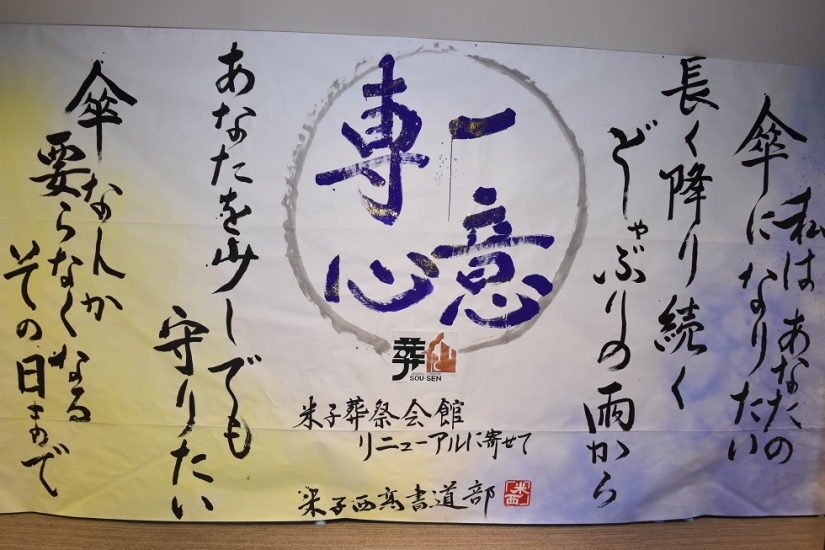 私はあなたの
傘になりたい
長く降り続く
どしゃぶりの雨から
一意
専心
葬仙
SOU-SEN
米子葬祭会館
リニューアルに寄せて
米子西高書道部
米西
あなたを少しでも
守りたい
傘なんか
要らなくなる
その日まで